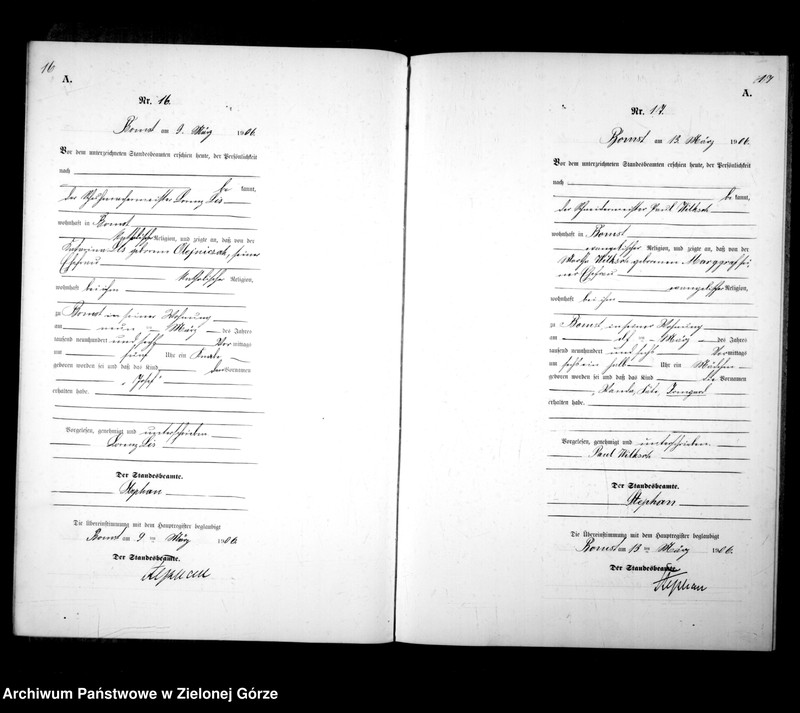 16
A.
Nr. 16.
Bomst am 9. März 1906.
Vor dem unterzeichneten Standesbeamten erschien heute, der Persönlichkeit
nach
be kannt,
der Schuhmachermeister Lis
wohnhaft in Bomst
katholischer Religion, und zeigte an, daß von der
Lis geborene Olejniczak, seiner
Ehefrau
katholischer Religion,
wohnhaft bei ihm
zu Bomst in seiner Wohnung
am neun ten März des Jahres
tausend neunhundert und sechs Vormittags
um fünf Uhr ein Knabe
geboren worden sei und daß das Kind den Vornamen
Josef
erhalten habe.
Vorgelesen, genehmigt und unterschrieben
Lis
Der Standesbeamte.
Stephan
Die Übereinstimmung mit dem Hauptregister beglaubigt
Bomst am 9 ten März 1906.
Der Standesbeamte.
Stephan
17
A.
Nr. 17.
Bomst am 13. März 1906.
Vor dem unterzeichneten Standesbeamten erschien heute, der Persönlichkeit
nach
be kannt,
der Schneidermeister Paul Wilksch
wohnhaft in Bomst
evangelischer Religion, und zeigte an, daß von der
Wilksch geborenen Marggraf sei-
ner Ehefrau
evangelischer Religion,
wohnhaft bei ihm
zu Bomst in seiner Wohnung
am elf ten März des Jahres
tausend neunhundert und sechs Vormittags
um sechs ein halb Uhr ein Mädchen
geboren worden sei und daß das Kind die Vornamen
Käte, Irmgard
erhalten habe.
Vorgelesen, genehmigt und unterschrieben.
Paul Wilksch
Der Standesbeamte.
Stephan
Die Übereinstimmung mit dem Hauptregister beglaubigt
Bomst am 13 ten März 1906.
Der Standesbeamte
Stephan
Archiwum Państwowe w Zielonej Górze